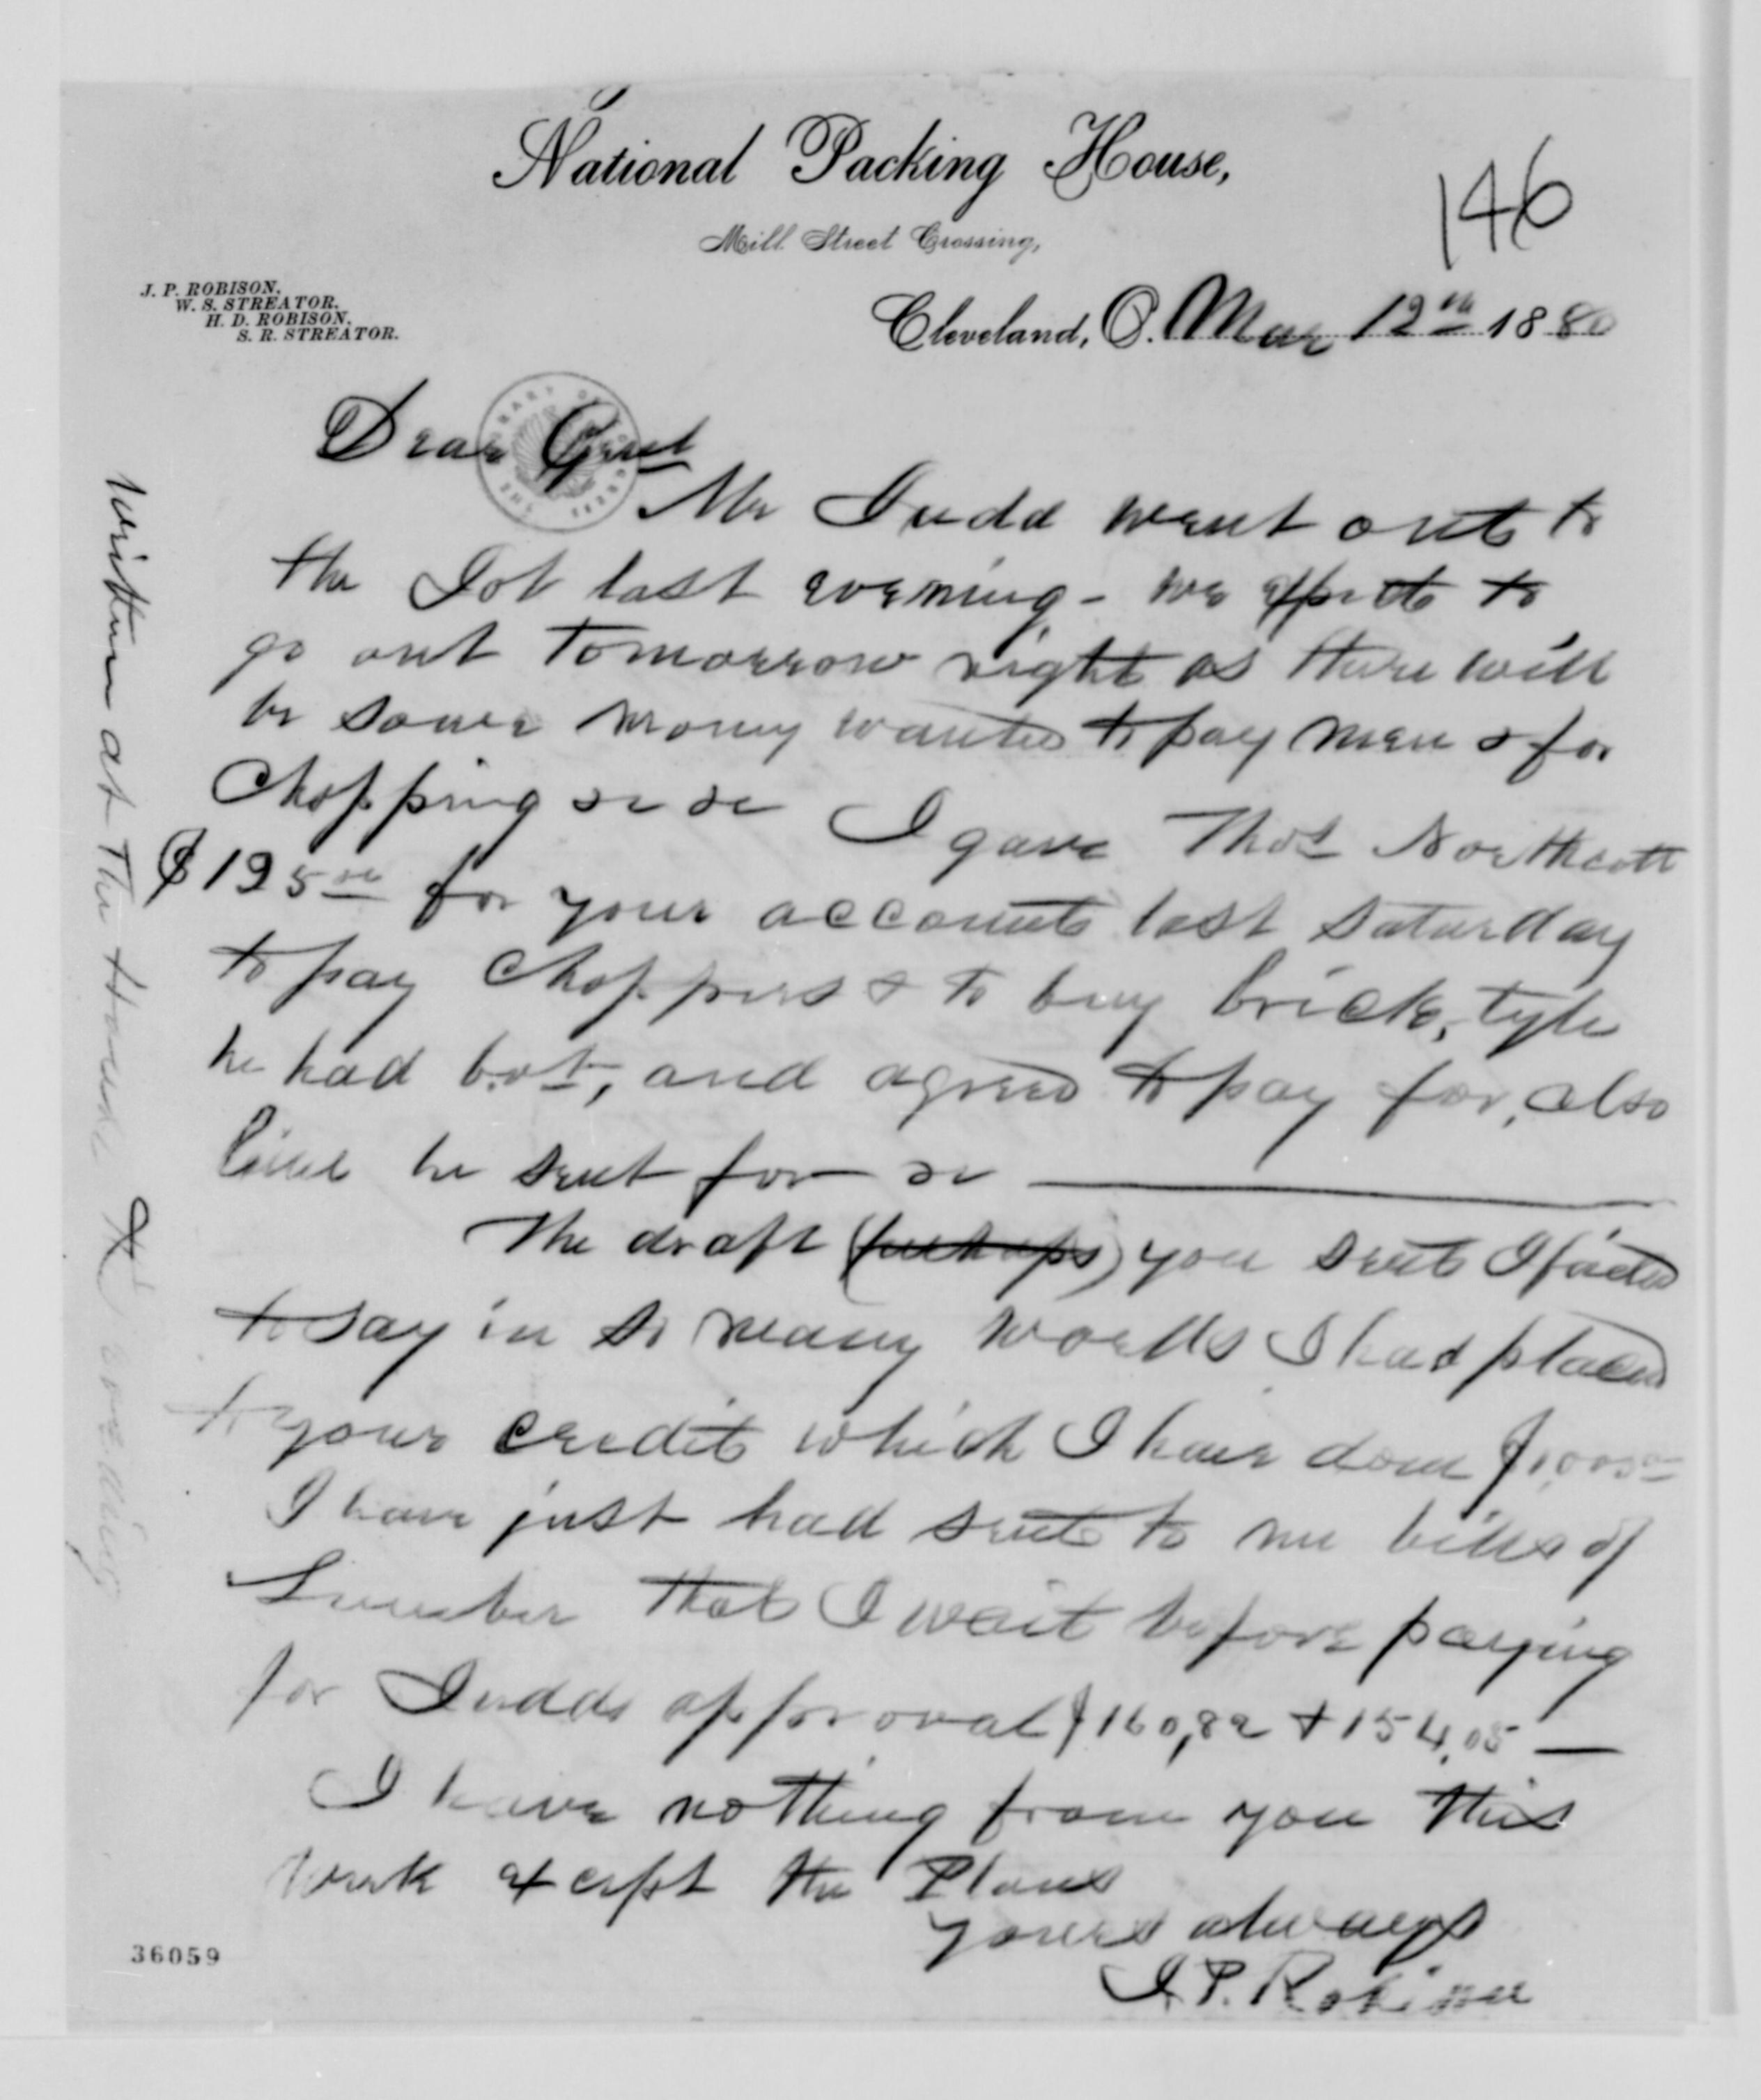 National Packing House,
146
Mill Street Crossing,
J. P. ROBISON.
W. S. STREATOR.
H. D. ROBISON.
S. R. STREATOR.
Cleveland, O. Mar 12th 1880
Dear Genl
Mr Judd went out to
the Job last evening - we expect to
go out tomorrow night as there will
be some money wanted to pay men & for
Chopping &c &c I gave Thos Northcott
$195 00 for your account last Saturday
to pay Choppers & to buy brick, tyle
he had bot, and agreed to pay for, also
lime he sent for &c
The draft (perhaps) you sent I failed
to say in so many words I had placed
to your credit which I have done
I have just had sent to me bills of
Lumber that I wait before paying
for Judds approval $160,82 + 154,05 —
I have nothing from you this
week except the Plans
yours always
J. P. Robison
Written at The House
36059